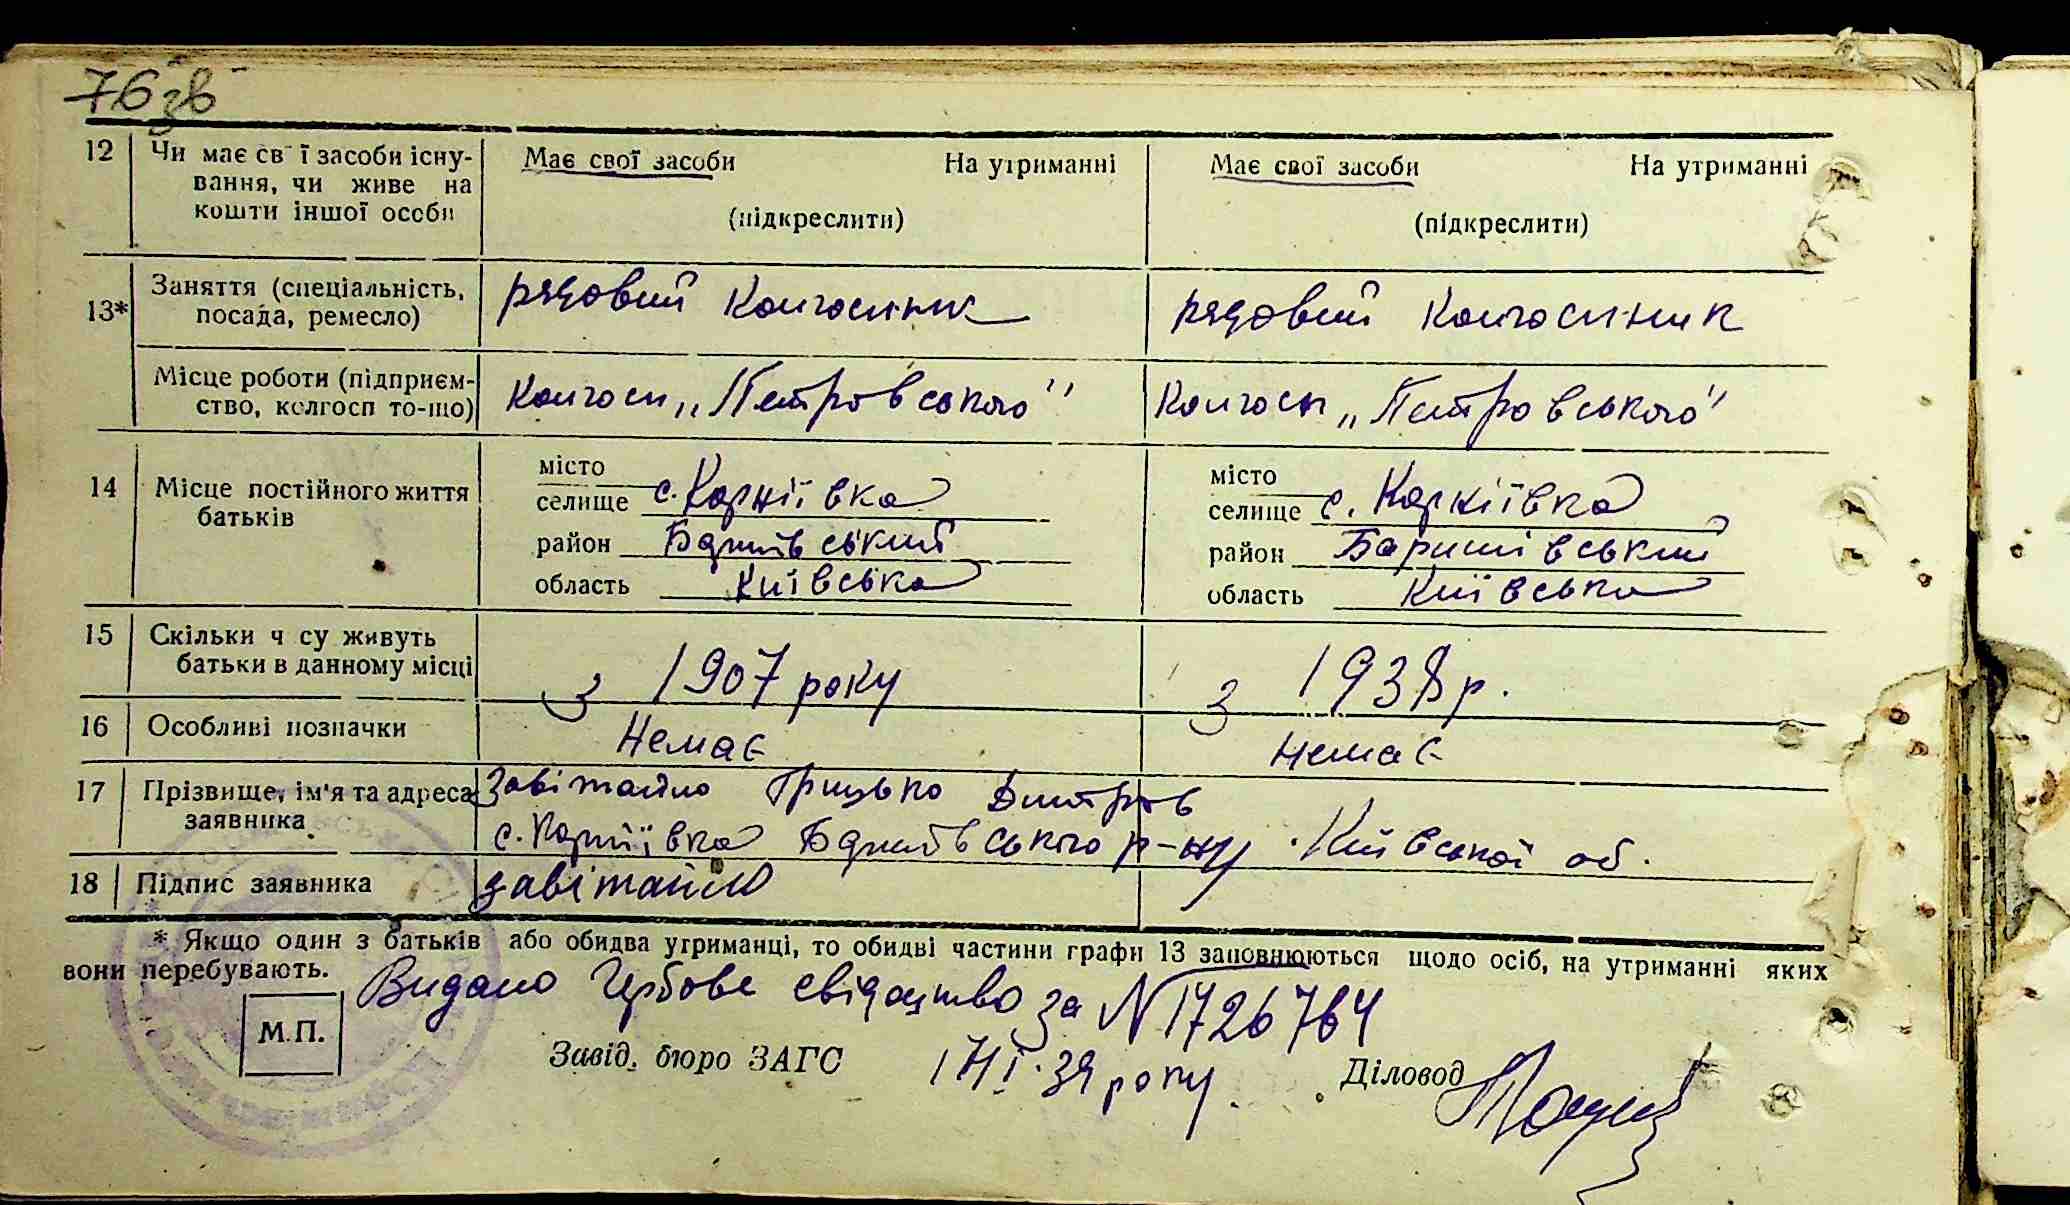 76 зв
12 Чи має св ї засоби існу- Має свої засоби На утриманні Має свої засоби На утриманні
вання, чи живе на
кошти іншої особи (підкреслити) (підкреслити)
13* Заняття (спеціальність, рядовий колгоспник рядовий колгоспник
посада, ремесло)
Місце роботи (підприєм- колгосп „Петровського" колгосп „Петровського"
ство, колгосп то-що)
місто місто
14 Місце постійного життя селище с. Коржіївка селище с. Коржіївка
батьків район Баришівський район Баришівський
область Київська область Київська
15 Скільки ч су живуть з 1907 року з 1938 р.
батьки в данному місці
16 Особливі позначки Немає Немає
17 Прізвище, ім'я та адреса Завітайло Грицько Дмитров
заявника с. Коржіївка Баришівського р-ну Київської об.
18 Підпис заявника завітайло
* Якщо один з батьків або обидва утриманці, то обидві частини графи 13 заповнюються щодо осіб, на утриманні яких
вони перебувають.
Видано Гербове свідоцтво за № 1726764
М.П.
Завід. бюро ЗАГС 39 року Діловод